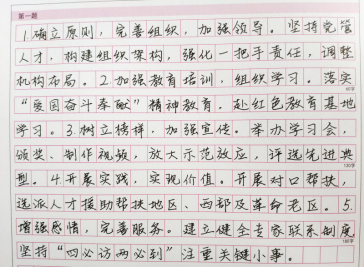 第一题
1.确立原则，完善组织，加强领导。坚持党管
人才，构建组织架构，强化一把手责任，调整
机构布局。2.加强教育培训，组织学习。落实
“爱国奋斗奉献”精神教育。赴红色教育基地
学习。3.树立榜样，加强宣传。举办学习会，
颁奖、制作视频，放大示范效应，评选先进典
型。4.开展实践，实现价值。开展对口帮扶，
选派人才援助帮扶地区、西部及革命老区。5.
增强感情，完善服务。建立健全专家联系制度
坚持“四必访两必到”注重关键小事。